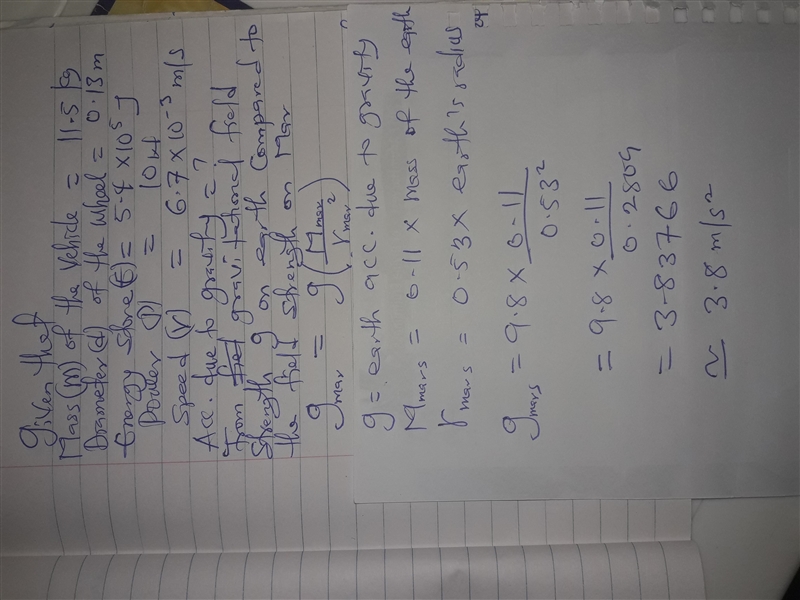 given that
Mass(m) of the vehicle = 11.5 kg
Diameter(d) of the wheel = 0.13m
Energy store(E) = 5.4 × 10⁵ J
Power (P) = 10W
Speed (v) = 6.7 × 10⁻³ m/s
Acc. due to gravity = ?
from gravitational field
strength g on earth compared to
the field strength on Mar
g mar = g (M mar / r mar ²)
g = earth acc. due to gravity
M mars = 0.11 × mass of the earth
r mars = 0.53 × earth's radius
g mars = 9.8 × 0.11 / 0.53²
= 9.8 × 0.11 / 0.2809
= 3.83766
≃ 3.8 m/s²